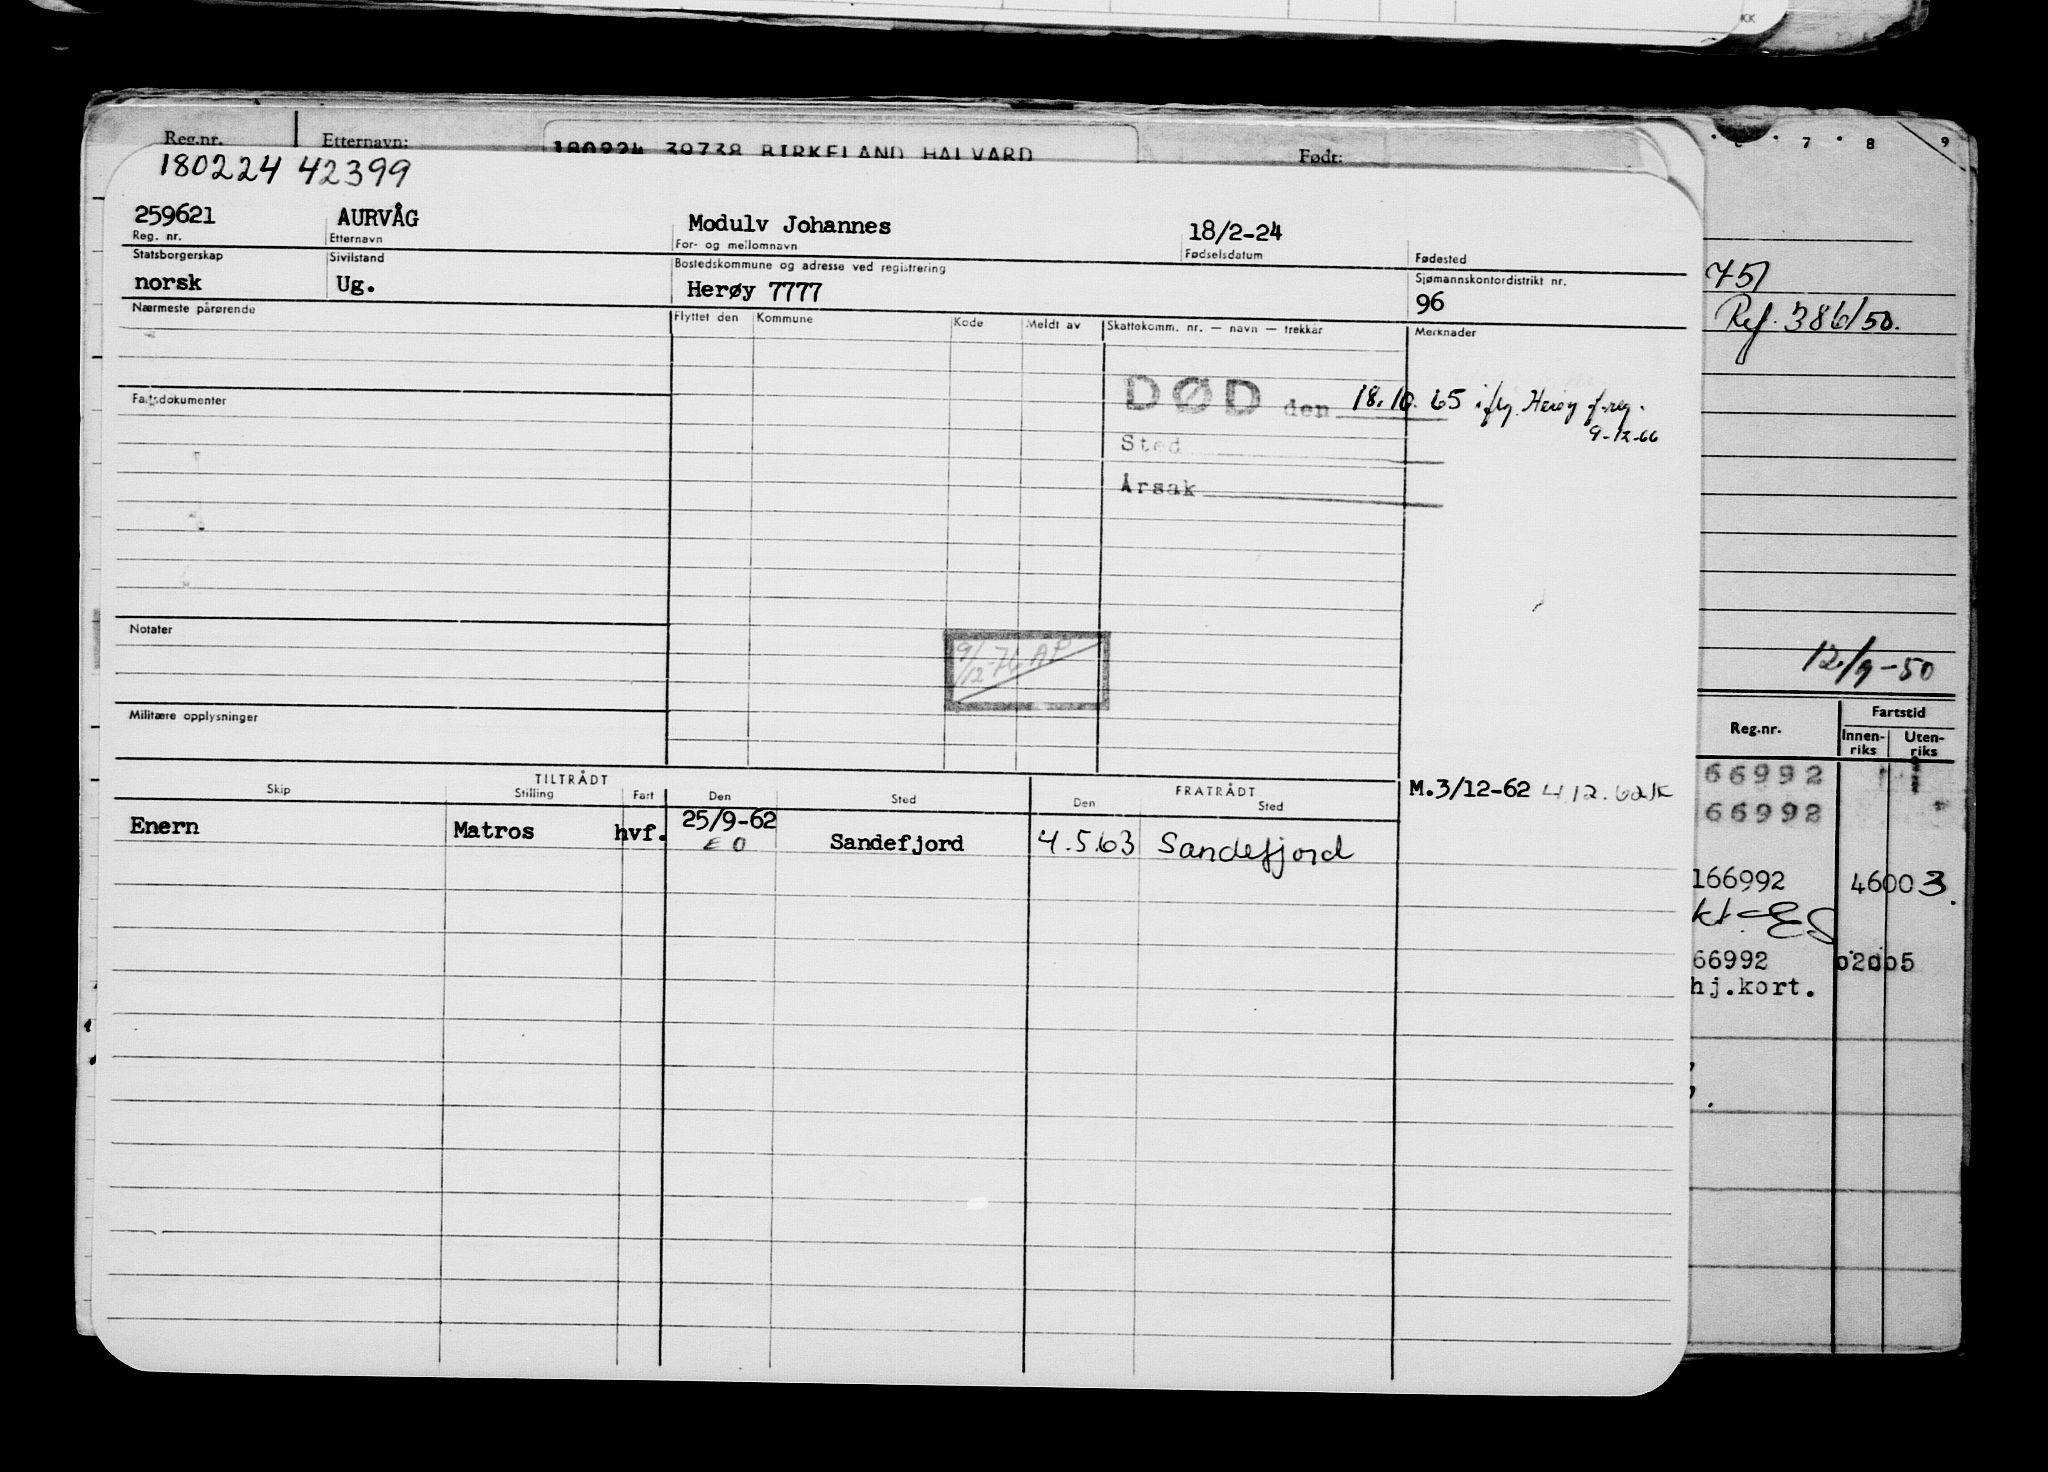 KK
Reg.nr. Etternavn: 180224 39738 BIRKELAND HALVARD Født:
7 8 9
180224 42399
259621 AURVÅG Modulv Johannes 18/2-24
Reg. nr. Etternavn For- og mellomnavn Fødselsdatum Fødested
Statsborgerskap Sivilstand Bostedskommune og adresse ved registrering Sjømannskontordistrikt nr.
norsk Ug. Herøy 7777 96
Nærmeste pårørende Flyttet den Kommune Kode Meldt av Skattekomm. nr. — navn — trekkår Merknader
DØD den 18.10.65 iflg. Herøy f.reg.
9-12-66
Fartsdokumenter
Sted
Årsak
Notater
9/12-76 AP
Militære opplysninger
TILTRÅDT FRATRÅDT
Skip Stilling Fart Den Sted Den Sted
M.3/12-62 4.12.62
Enern Matros hvf. 25/9-62 Sandefjord 4.5.63 Sandefjord
E O
751
Ref. 386/50.
12/9-50
Reg.nr. Fartstid
Innen-riks Uten-riks
66992
66992
166992 46003.
kt
66992 02005
hj.kort.